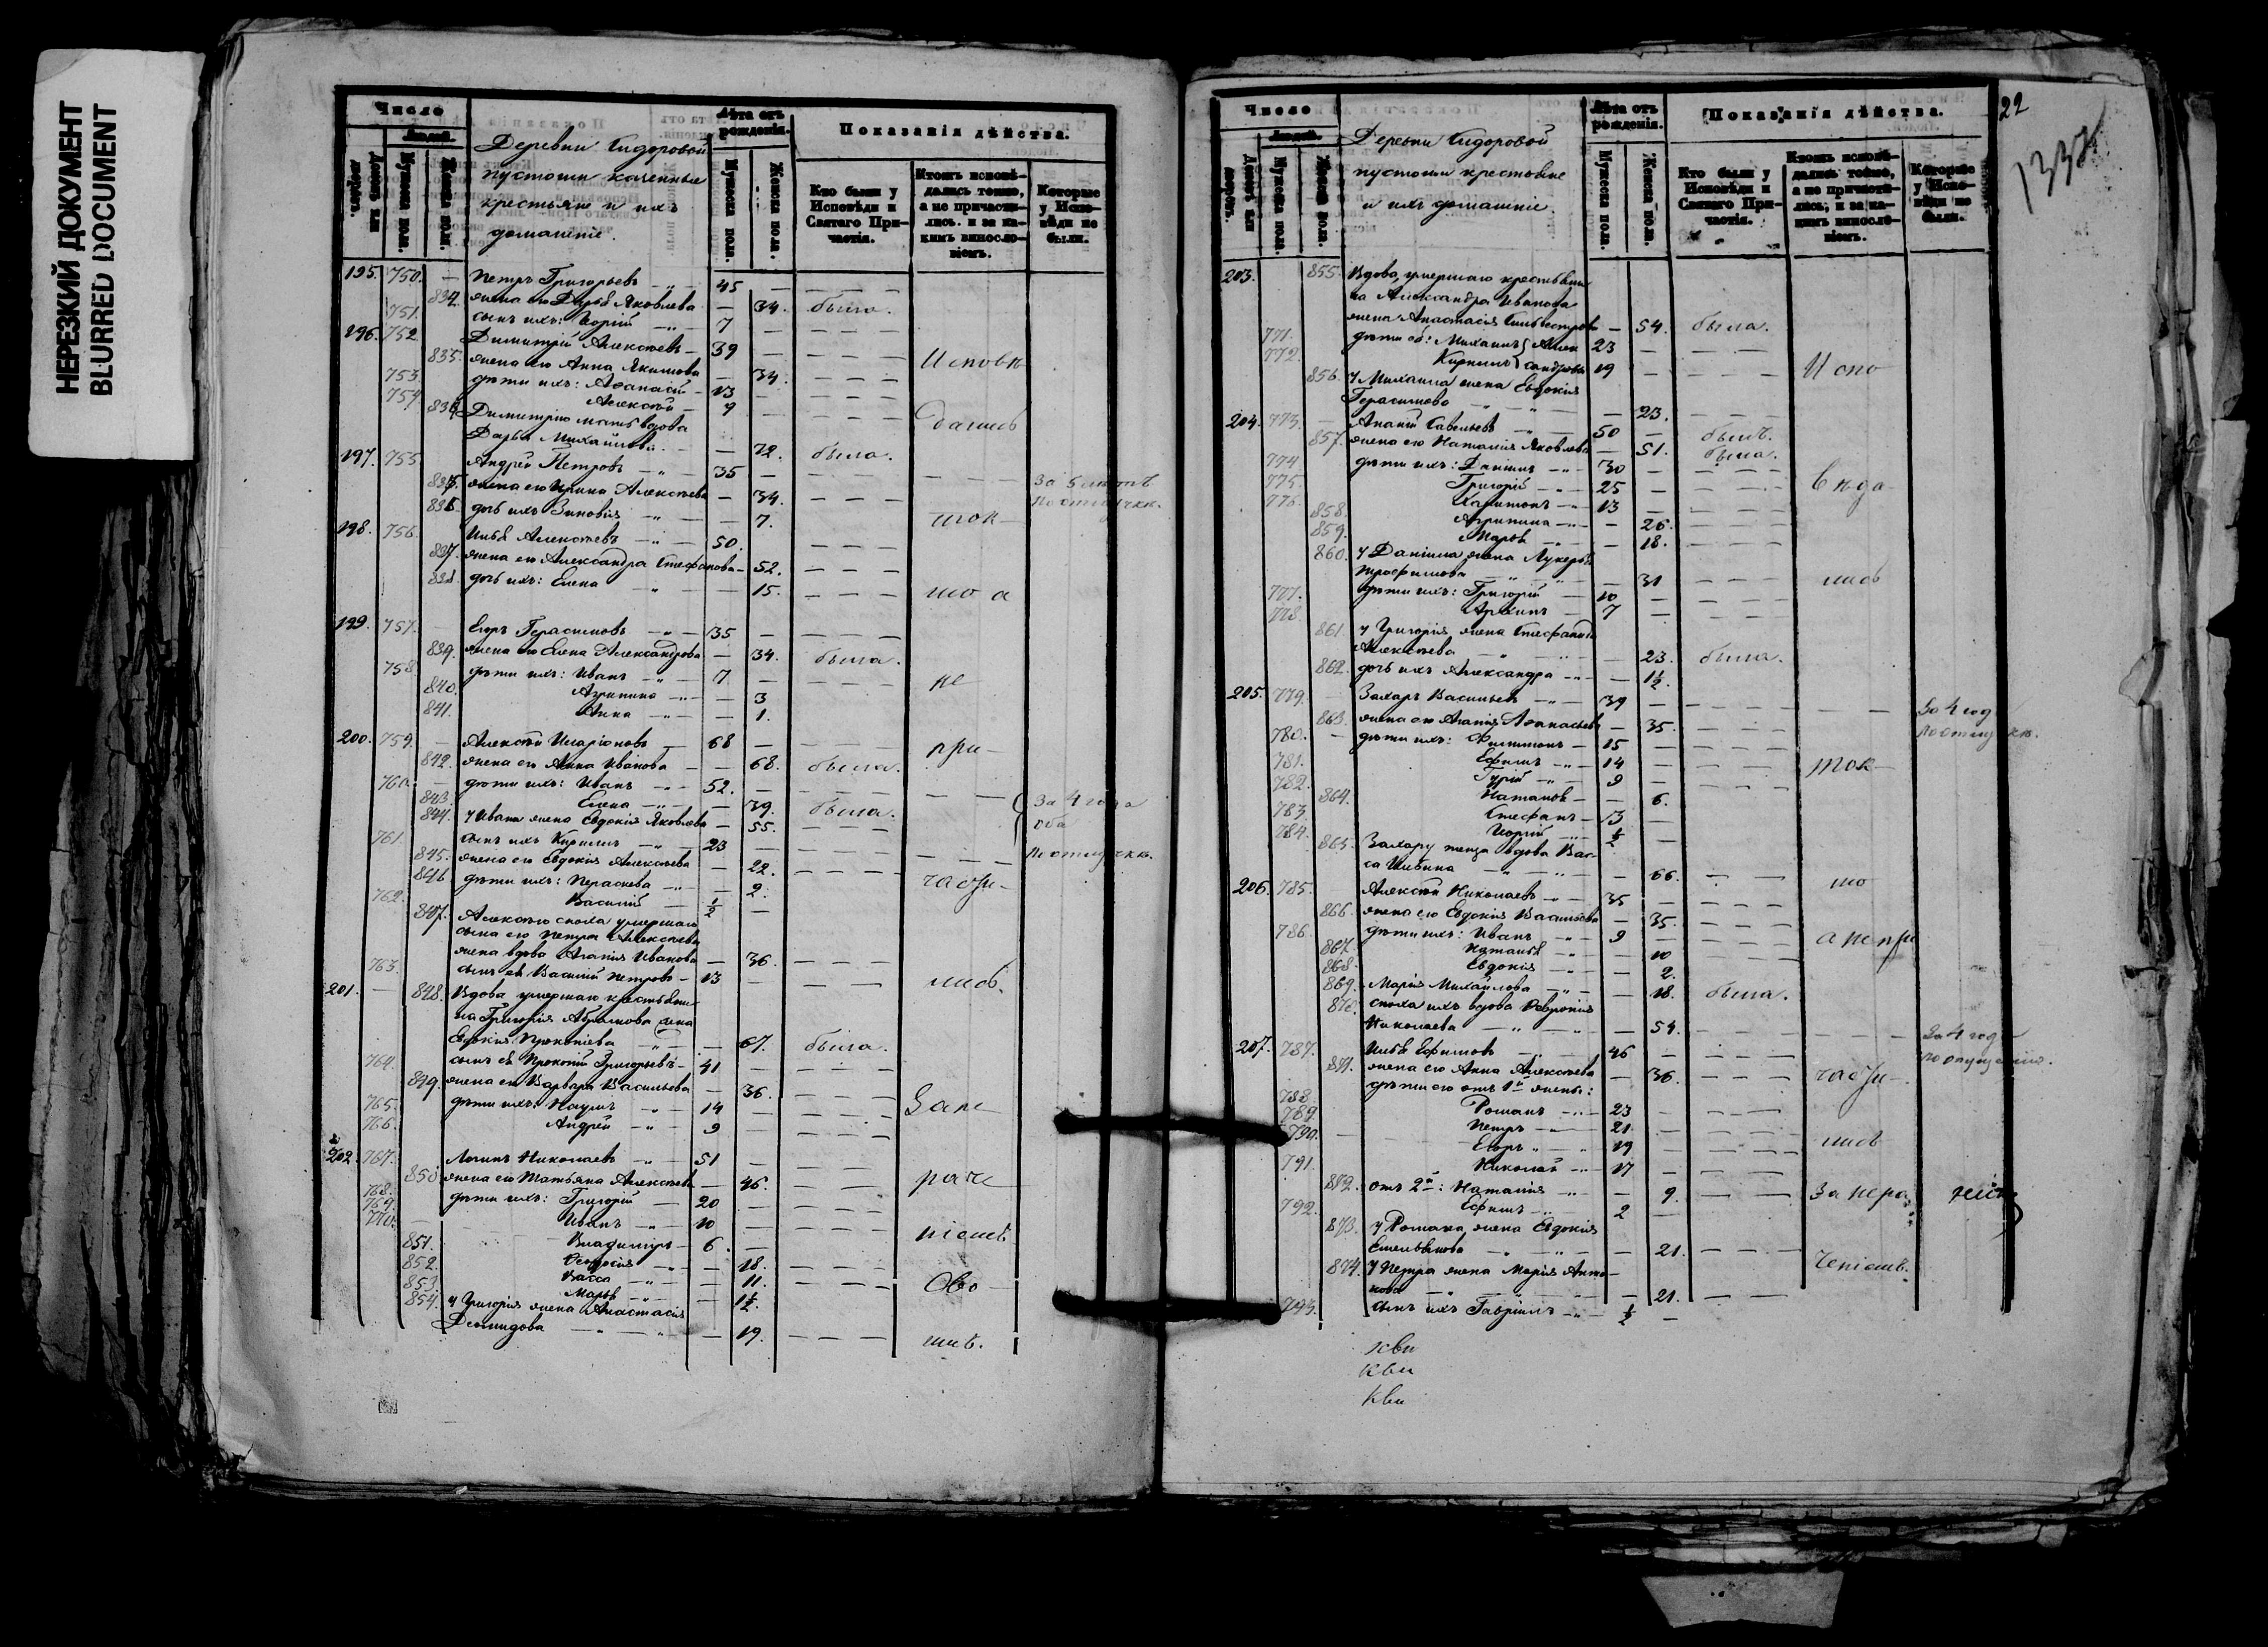 НЕРЕЗКИЙ ДОКУМЕНТ
BLURRED DOCUMENT
Число
Людей.
Мужеска пола.
Женска пола.
Деревни Сидоровой
пустоши казенные
крестьяне и ихъ
домашніе.
Лѣта отъ рожденія.
Мужеска пола.
Женска пола.
Показанія дѣйства.
Кто были у Исповѣди и Святаго Причастія.
Ктожъ исповѣдались токмо, а не причастились. и за какимъ винословіемъ.
Которые у Исповѣди не были.
195. 750. — Петръ Григорьевъ — 45 —
834. жена его Дарья Яковлева — 34. была.
751. сынъ ихъ: Георгій — 7 —
196. 752. Димитрій Алексѣевъ — 39 —
835. жена его Анна Якимова — 34. Исповѣ
753. дѣти ихъ: Аѳанасій — 13 —
754. Алексѣй — 9 —
836. Димитрію мать вдова
Дарья Михайлова — 72. была. дались
197. 755. Андрей Петровъ — 35 —
жена его Ирина Алексѣева — 34. За 5 лѣтъ
дочь ихъ Зиновія — 7. по отлучкѣ.
198. 756. Илья Алексѣевъ — 50. ток-
837. жена его Александра Стефанова — 52.
838. дочь ихъ: Елена — 15. мо а
199. 757. Егоръ Герасимовъ — 35 —
839. жена его Елена Александрова — 34. была.
758. дѣти ихъ: Иванъ — 7 — не
840. Агрипина — 3
841. Анна — 1.
200. 759. Алексѣй Иларіоновъ — 68 — при-
842. жена его Анна Иванова — 68. была.
760. дѣти ихъ: Иванъ — 52. —
843. Елена — 39. была. За 4 года
844. у Ивана жена Евдокія Яковлева — 55. оба
761. сынъ ихъ Кириллъ — 23 — по отлучкѣ.
845. жена его Евдокія Алексѣева — 22.
846. дѣти ихъ: Пераскева — 2. части-
762. Василій — ½ —
847. Алексѣю сноха умершаго
сына его Петра Алексѣева
жена вдова Агапія Иванова — 36.
763. сынъ ея Василій Петровъ — 13 — лись.
201. — 848. Вдова умершаго крестьяни-
на Григорія Абрамова жена
Евдокія Прокопіева — 67. была.
764. сынъ ея Прокопій Григорьевъ — 41 —
849. жена его Варвара Васильева — 36.
765. дѣти ихъ: Наумъ — 14 — За не
766. Андрей — 9 —
202. 767. Логинъ Николаевъ — 51 —
850. жена его Татьяна Алексѣева — 46. раче
768. дѣти ихъ: Григорій — 20
769. Иванъ — 10
770. Владиміръ — 6. — ніемъ
851. Ѳеодосія — 18.
852. Васса — 11.
853. Марѳа — 1½. Ово
854. у Григорія жена Анастасія
Демидова — 19.
22
1337
Число
Людей.
Мужеска пола.
Женска пола.
Деревни Сидоровой
пустоши крестьяне
и ихъ домашніе.
Лѣта отъ рожденія.
Мужеска пола.
Женска пола.
Показанія дѣйства.
Кто были у Исповѣди и Святаго Причастія.
Ктожъ исповѣдались токмо, а не причастились; и за какимъ винословіемъ.
Которые у Исповѣди не были.
203. 855. Вдова, умершаго крестьяни-
на Александра Иванова
жена Анастасія Сильвестрова — 54. была.
771. дѣти ея: Михаилъ } Алек 23 —
772. Кириллъ } сандровы 19 — Испо
856. у Михаила жена Евдокія
Герасимова — 23.
204. 773. Ананій Савельевъ — 50 — былъ.
857. жена его Наталія Яковлева — 51. была.
774. дѣти ихъ: Даніилъ — 30 —
775. Григорій — 25 — вѣда-
776. Харитонъ — 13 —
858. Агрипина — 26.
859. Марѳа — 18.
860. у Даніила жена Лукерья
Трофимова — 31 лись
777. дѣти ихъ: Григорій — 10 —
778. Архипъ — 7 —
861. у Григорія жена Стефанида
Алексѣева — 23. была.
862. дочь ихъ Александра — 1½
205. 779. Захаръ Васильевъ — 39 — За 4 год
863. жена его Агапія Аѳанасьева — 35. по отлучкѣ.
780. дѣти ихъ: Филимонъ — 15 —
781. Ефимъ — 14 — ток-
782. Гурій — 9 —
864. Наталія — 6.
783. Стефанъ — 3 —
784. Георгій — ½ —
865. Захару теща вдова Вас-
са Ильина — 66. мо
206. 785. Алексѣй Николаевъ — 35 —
866. жена его Евдокія Васильева — 35.
786. дѣти ихъ: Иванъ — 9 — а не при
867. Наталья — 10
868. Евдокія — 2.
869. Марія Михайлова — 18. была.
870. сноха ихъ вдова Февронія
Николаева — 54.
207. 787. Илья Ефимовъ — 46 — За 4 год
871. жена его Анна Алексѣева — 36. части-
дѣти его отъ 1й жены:
788. Романъ — 23
789. Петръ — 21
790. Егоръ — 19 лись
791. Николай — 17
872. отъ 2й: Наталія — 9. За нера-
792. Ефимъ — 2
873. у Романа жена Евдокія
Емельянова — 21.
874. у Петра жена Марія Анто-
нова — 21. ченіемъ.
793. сынъ ихъ Гавріилъ — ½ —